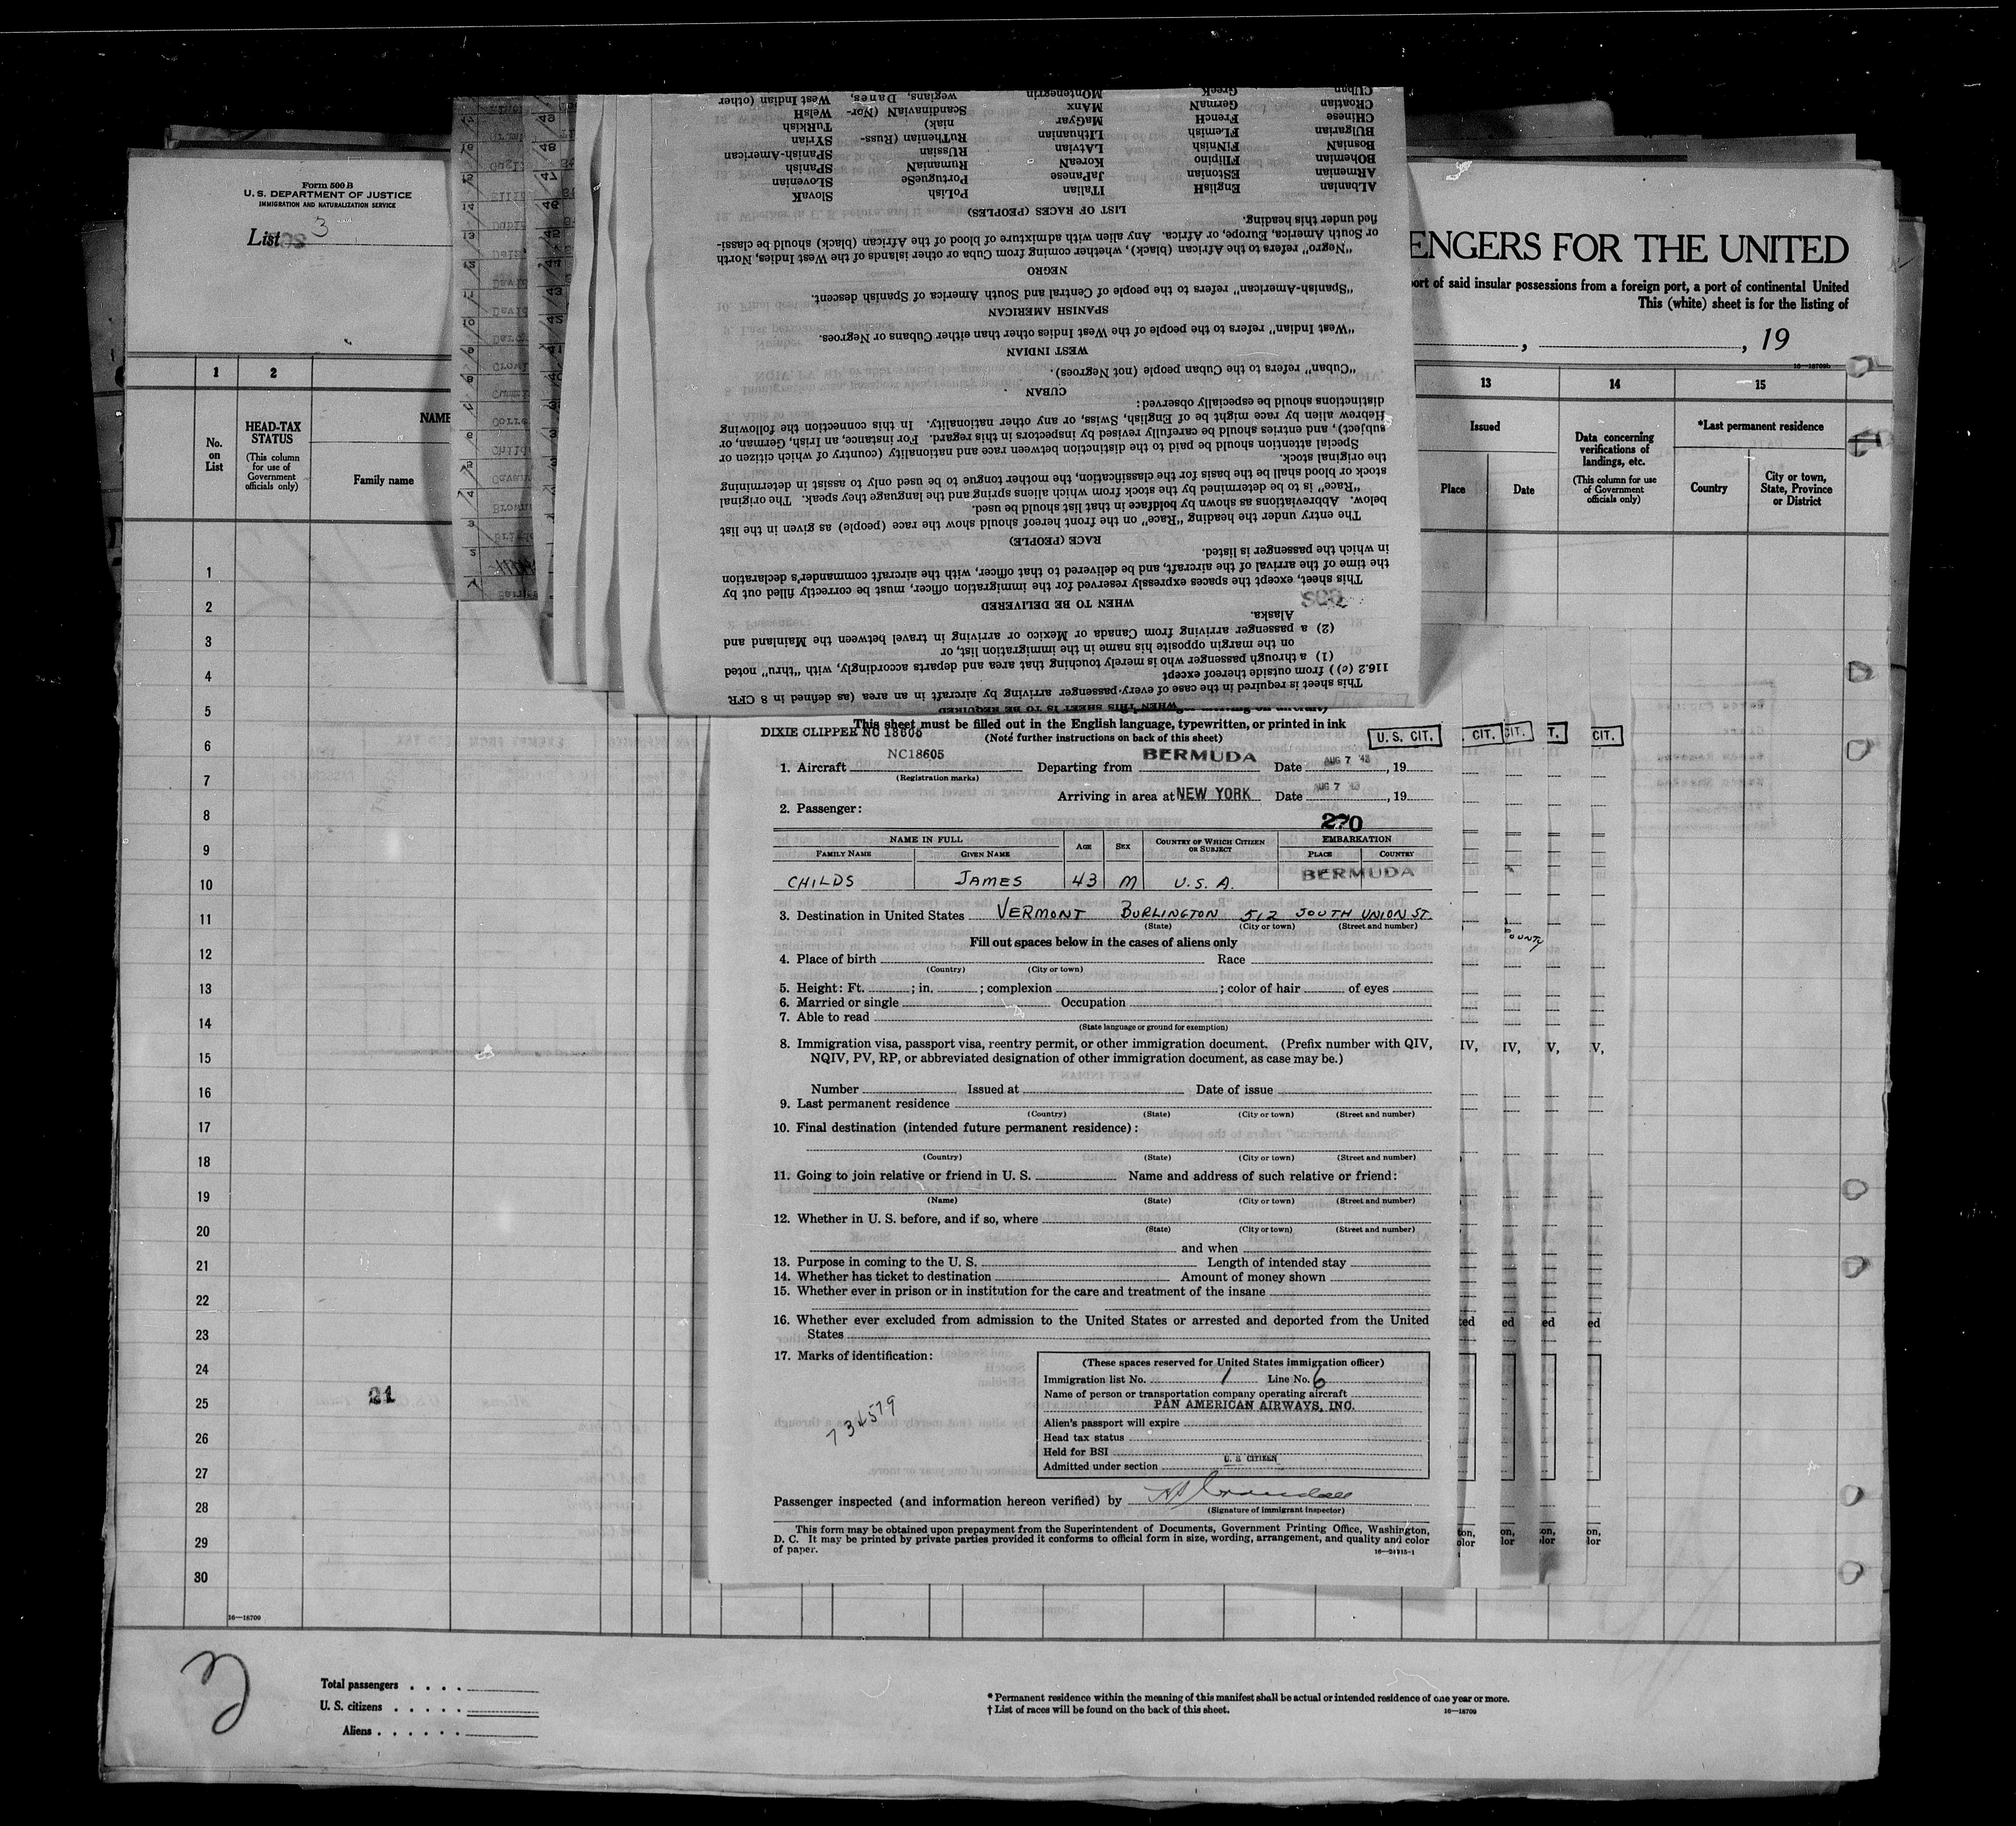 Form 500 B
U. S. DEPARTMENT OF JUSTICE
IMMIGRATION AND NATURALIZATION SERVICE
List 3
ENGERS FOR THE UNITED
port of said insular possessions from a foreign port, a port of continental United
This (white) sheet is for the listing of
, , 19
16—18709b
1 2 13 14 15
No. on List
HEAD-TAX STATUS
(This column for use of Government officials only)
NAME
Family name
Issued
Place Date
Data concerning verifications of landings, etc.
(This column for use of Government officials only)
*Last permanent residence
Country
City or town, State, Province or District
1
2
3
4
5
6
7
8
9
10
11
12
13
14
15
16
17
18
19
20
21
22
23
24
25
26
27
28
29
30
21
16—18709
Total passengers . . . .
U. S. citizens . . . . .
Aliens . . . . . .
* Permanent residence within the meaning of this manifest shall be actual or intended residence of one year or more.
† List of races will be found on the back of this sheet.
16—18709
WHEN THIS SHEET IS TO BE REQUIRED
This sheet is required in the case of every passenger arriving by aircraft in an area (as defined in 8 CFR
116.2 (c)) from outside thereof except
(1) a through passenger who is merely touching that area and departs accordingly, with "thru" noted
on the margin opposite his name in the immigration list, or
(2) a passenger arriving from Canada or Mexico or arriving in travel between the Mainland and
Alaska.
WHEN TO BE DELIVERED
This sheet, except the spaces expressly reserved for the immigration officer, must be correctly filled out by
the time of the arrival of the aircraft, and be delivered to that officer, with the aircraft commander's declaration
in which the passenger is listed.
RACE (PEOPLE)
The entry under the heading "Race" on the front hereof should show the race (people) as given in the list
below. Abbreviations as shown by boldface in that list should be used.
"Race" is to be determined by the stock from which aliens spring and the language they speak. The original
stock or blood shall be the basis for the classification, the mother tongue to be used only to assist in determining
the original stock.
Special attention should be paid to the distinction between race and nationality (country of which citizen or
subject), and entries should be carefully revised by inspectors in this regard. For instance, an Irish, German, or
Hebrew alien by race might be of English, Swiss, or any other nationality. In this connection the following
distinctions should be especially observed:
CUBAN
"Cuban" refers to the Cuban people (not Negroes).
WEST INDIAN
"West Indian" refers to the people of the West Indies other than either Cubans or Negroes.
SPANISH AMERICAN
"Spanish-American" refers to the people of Central and South America of Spanish descent.
NEGRO
"Negro" refers to the African (black), whether coming from Cuba or other islands of the West Indies, North
or South America, Europe, or Africa. Any alien with admixture of blood of the African (black) should be classi-
fied under this heading.
LIST OF RACES (PEOPLES)
ALbanian ENglisH ITalian PoLish SlovaK
ARmenian EStonian JaPanese PortugueSe SLovenian
BOhemian FIlipino KoreaN RumaniaN SPanisH
BosniaN FiNnish LAtvian RUssian SPanish-American
BUlgarian FLemish LIthuanian RuThenian (Russ- SYrian
CHinese FrencH MaGyar niak) TuRkish
CRoatian GermaN MAnx Scandinavian (Nor- WelsH
CUban GreeK MOntenegrin wegians, Danes, West Indian (other
This sheet must be filled out in the English language, typewritten, or printed in ink
DIXIE CLIPPER NC 18605
(Note further instructions on back of this sheet)
U. S. CIT. CIT. CIT. T. CIT.
1. Aircraft NC18605 Departing from BERMUDA Date AUG 7 '43, 19
(Registration marks)
Arriving in area at NEW YORK Date AUG 7 '43, 19
2. Passenger:
270
NAME IN FULL AGE SEX COUNTRY OF WHICH CITIZEN OR SUBJECT EMBARKATION
FAMILY NAME GIVEN NAME PLACE COUNTRY
CHILDS JAMES 43 M U.S.A. BERMUDA
3. Destination in United States VERMONT BURLINGTON 512 SOUTH UNION ST.
(State) (City or town) (Street and number)
Fill out spaces below in the cases of aliens only
4. Place of birth Race
(Country) (City or town)
5. Height: Ft. ; in. ; complexion ; color of hair of eyes
6. Married or single Occupation
7. Able to read
(State language or ground for exemption)
8. Immigration visa, passport visa, reentry permit, or other immigration document. (Prefix number with QIV,
NQIV, PV, RP, or abbreviated designation of other immigration document, as case may be.)
IV, IV, V, V,
Number Issued at Date of issue
9. Last permanent residence
(Country) (State) (City or town) (Street and number)
10. Final destination (intended future permanent residence):
(Country) (State) (City or town) (Street and number)
11. Going to join relative or friend in U. S. Name and address of such relative or friend:
(Name) (State) (City or town) (Street and number)
12. Whether in U. S. before, and if so, where
(State) (City or town) (Street and number)
and when
13. Purpose in coming to the U. S. Length of intended stay
14. Whether has ticket to destination Amount of money shown
15. Whether ever in prison or in institution for the care and treatment of the insane
16. Whether ever excluded from admission to the United States or arrested and deported from the United
States
17. Marks of identification:
734579
(These spaces reserved for United States immigration officer)
Immigration list No. 1 Line No. 6
Name of person or transportation company operating aircraft
PAN AMERICAN AIRWAYS, INC.
Alien's passport will expire
Head tax status
Held for BSI
Admitted under section U. S. CITIZEN
Passenger inspected (and information hereon verified) by
(Signature of immigrant inspector)
This form may be obtained upon prepayment from the Superintendent of Documents, Government Printing Office, Washington,
D. C. It may be printed by private parties provided it conforms to official form in size, wording, arrangement, and quality and color
of paper.
16—24915-1